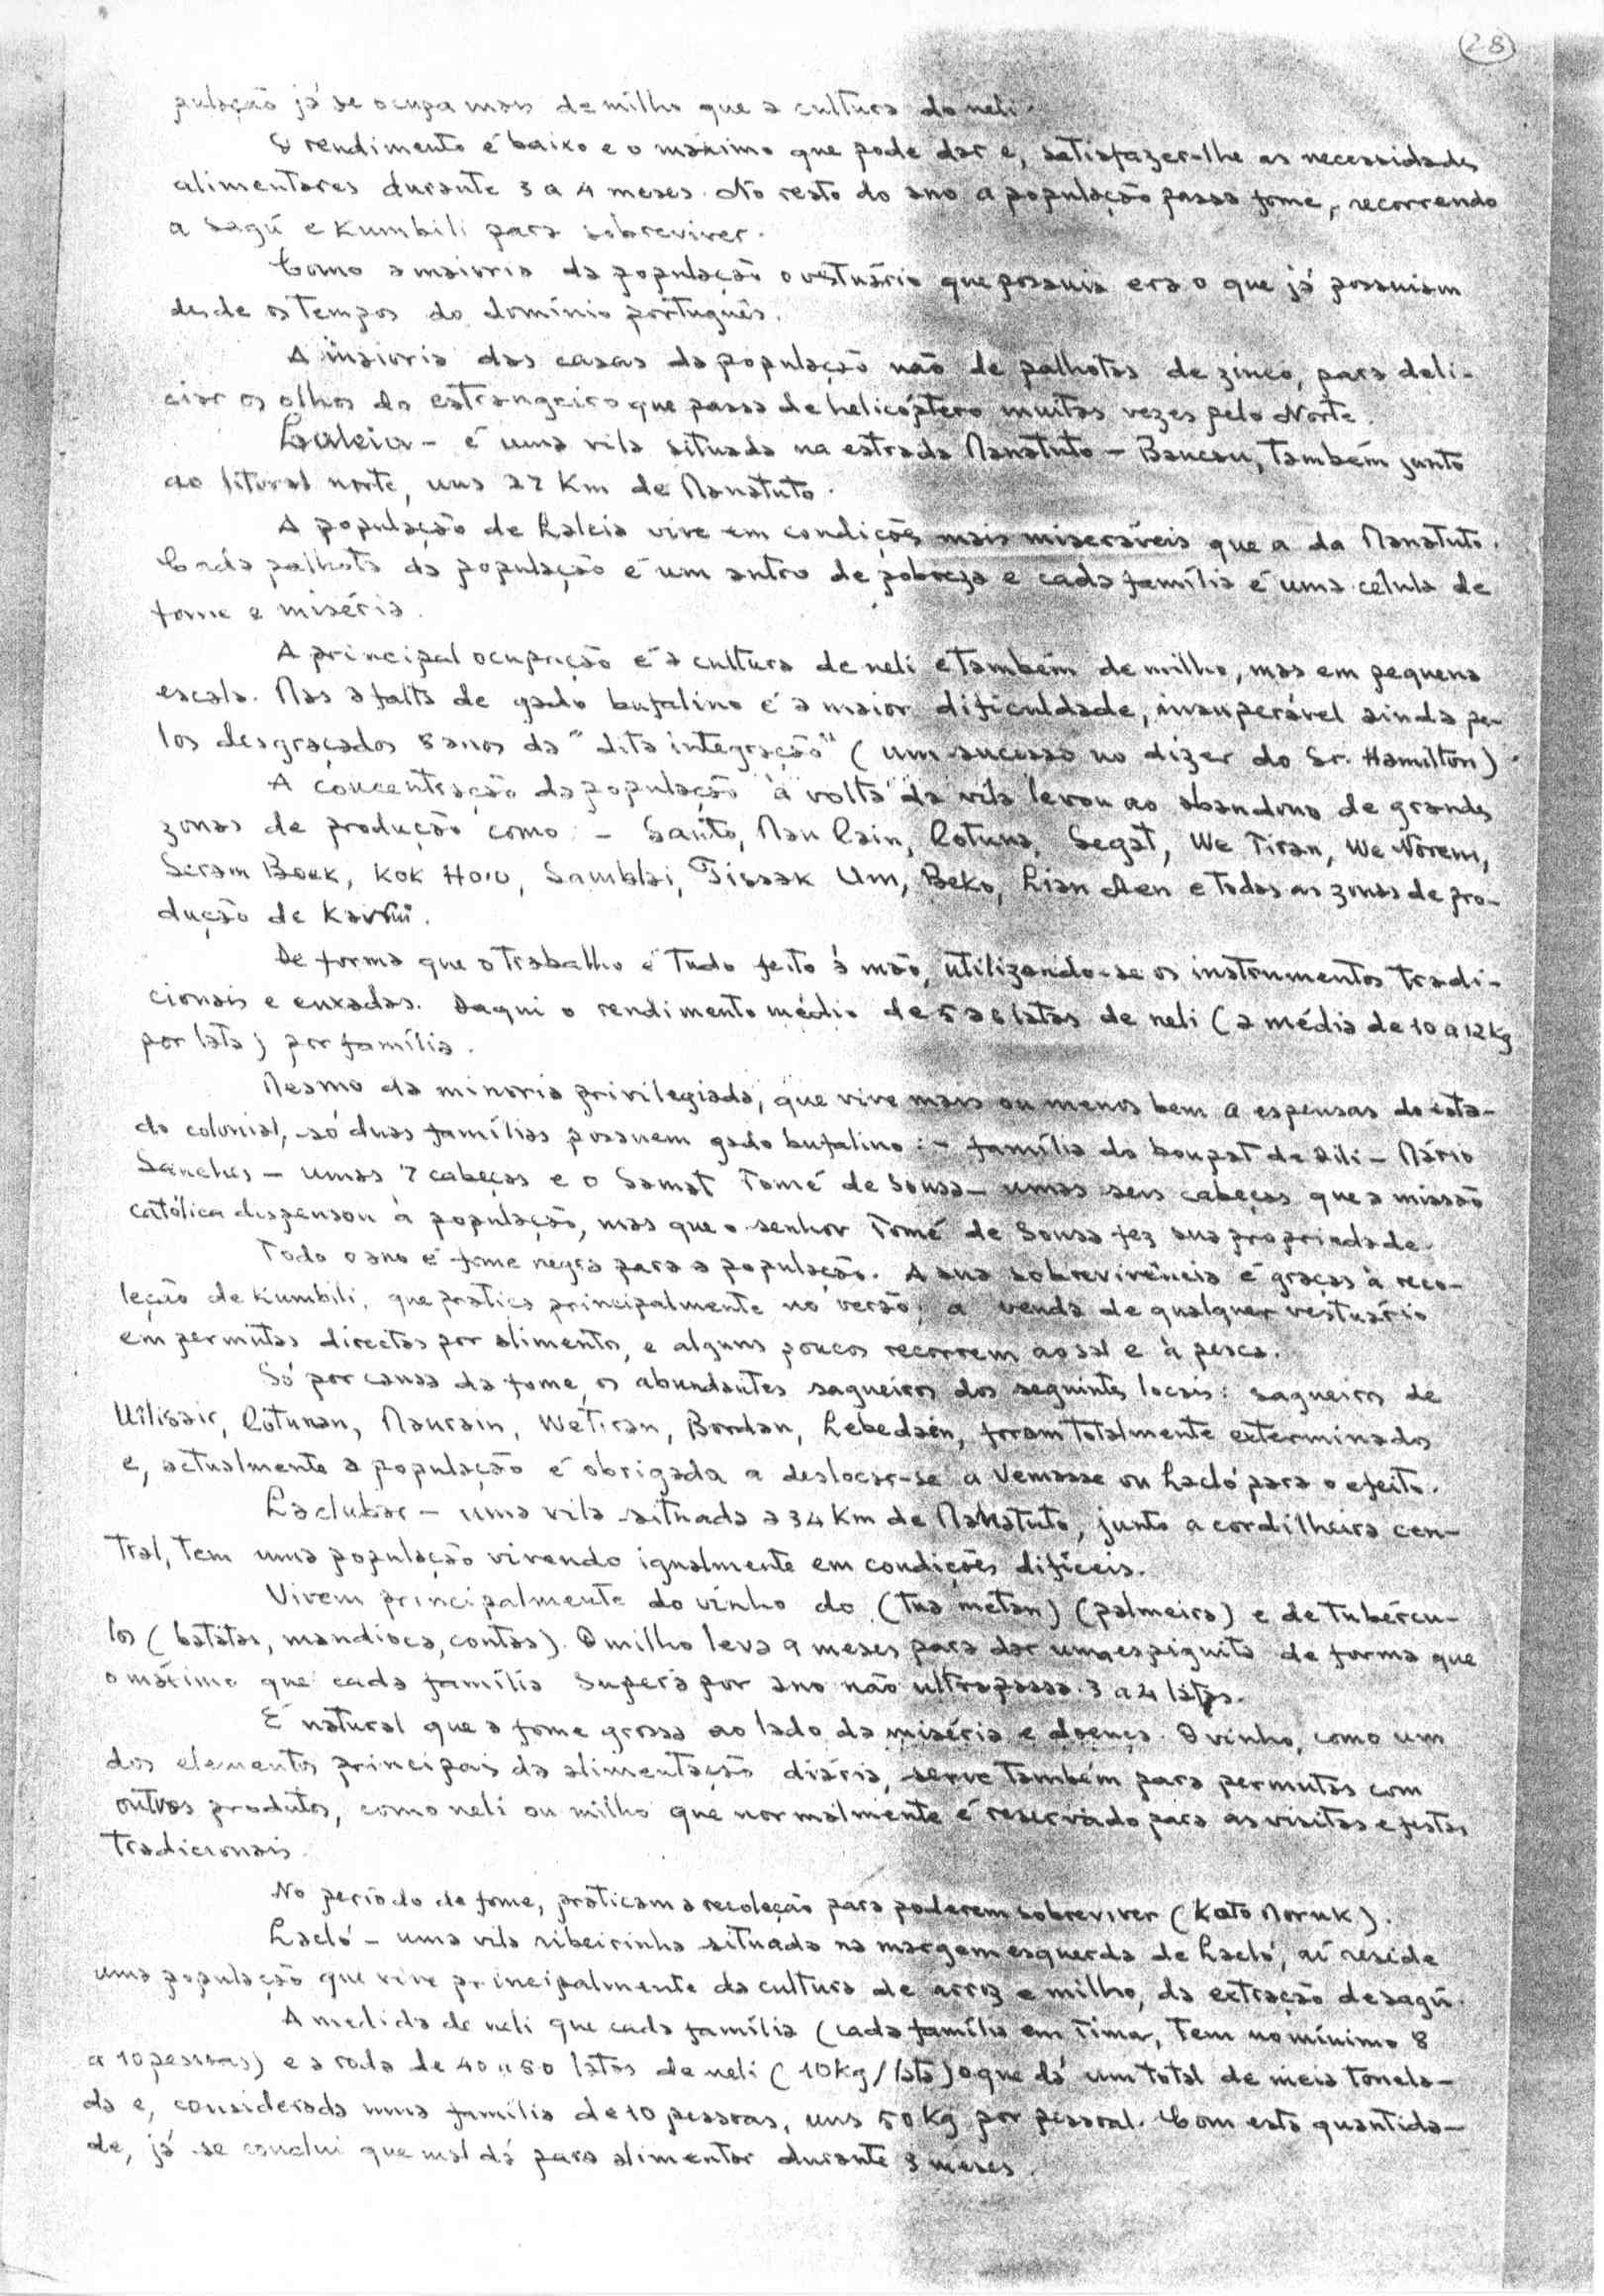 28
pulação já se ocupa mais de milho que a cultura do neli.
O rendimento é baixo e o máximo que pode dar e, satisfazer-lhe as necessidades
alimentares durante 3 a 4 meses. No resto do ano a população passa fome, recorrendo
a sagú e kumbili para sobreviver.
Como a maioria da população o vestuário que possuia era o que já possuiam
desde os tempos do domínio português.
A maioria das casas da população não de palhotas de zinco, para deli-
ciar os olhos do estrangeiro que passa de helicóptero muitas vezes pelo Norte.
Laleia - é uma vila situada na estrada Manatuto - Baucau, também junto
ao litoral norte, uns 27 Km de Manatuto.
A população de Laleia vive em condições mais miseráveis que a da Manatuto.
Cada palhota da população é um antro de pobreza e cada família é uma célula de
fome e miséria.
A principal ocupação é a cultura de neli e também de milho, mas em pequena
escala. Mas a falta de gado bufalino é a maior dificuldade, insuperável ainda pe-
los desgraçados 5 anos da "dita integração" (um sucesso no dizer do Sr. Hamilton).
A concentração da população à volta da vila levou ao abandono de grandes
zonas de produção como: - Santo, Mau Rain, Rotuna, Segat, We Tiran, We Norem,
Seram Boek, Kok Hoiu, Samblai, Tissak Um, Beko, Lian Aen e todas as zonas de pro-
dução de
De forma que o trabalho é tudo feito à mão, utilizando-se os instrumentos tradi-
cionais e enxadas. Daqui o rendimento médio de 5 a 6 latas de neli (a média de 10 a 12 kg
por lata) por família.
Mesmo da minoria privilegiada, que vive mais ou menos bem a espensas do esta-
do colonial, só duas famílias possuem gado bufalino: - família do boupat de Dili - Mário
Sanches - umas 7 cabeças e o Samat Tomé de Sousa - umas seis cabeças que a missão
católica dispensou à população, mas que o senhor Tomé de Sousa fez sua propriedade.
Todo o ano é fome negra para a população. A sua sobrevivência é graças à reco-
leção de Kumbili, que pratica principalmente no verão; a venda de qualquer vestuário
em permutas directas por alimentos, e alguns poucos recorrem ao sal e à pesca.
Só por causa da fome, os abundantes sagueiros dos seguintes locais: sagueiros de
Uilisair, Rotunan, Maurain, Wetiran, Bondan, Lebedaén, foram totalmente exterminados
e, actualmente a população é obrigada a deslocar-se a Vemasse ou Lacló para o efeito.
Laclubar - uma vila situada a 34 Km de Manatuto, junto a cordilheira cen-
tral, tem uma população vivendo igualmente em condições difíceis.
Vivem principalmente do vinho do (tua metan) (palmeira) e de tubércu-
los (batatas, mandioca, contas). O milho leva 9 meses para dar uma espiguita de forma que
o máximo que cada família supera por ano não ultrapassa 3 a 4 latas.
É natural que a fome grossa ao lado da miséria e doença. O vinho, como um
dos elementos principais da alimentação diária, serve também para permutas com
outros produtos, como neli ou milho que normalmente é reservado para as visitas e festas
tradicionais.
No período de fome, praticam a recoleção para poderem sobreviver (Kato Moruk).
Lacló - uma vila ribeirinha situada na margem esquerda de Lacló, aí reside
uma população que vive principalmente da cultura de arroz e milho, da extração de sagú.
A medida de neli que cada família (cada família em Timor, tem no mínimo 8
a 10 pessoas) e a roda de 40 a 50 latas de neli (10 kg/lata) o que dá um total de meia tonela-
da e, considerada uma família de 10 pessoas, uns 50 kg por pessoal. Com esta quantida-
de, já se conclui que mal dá para alimentar durante 3 meses.